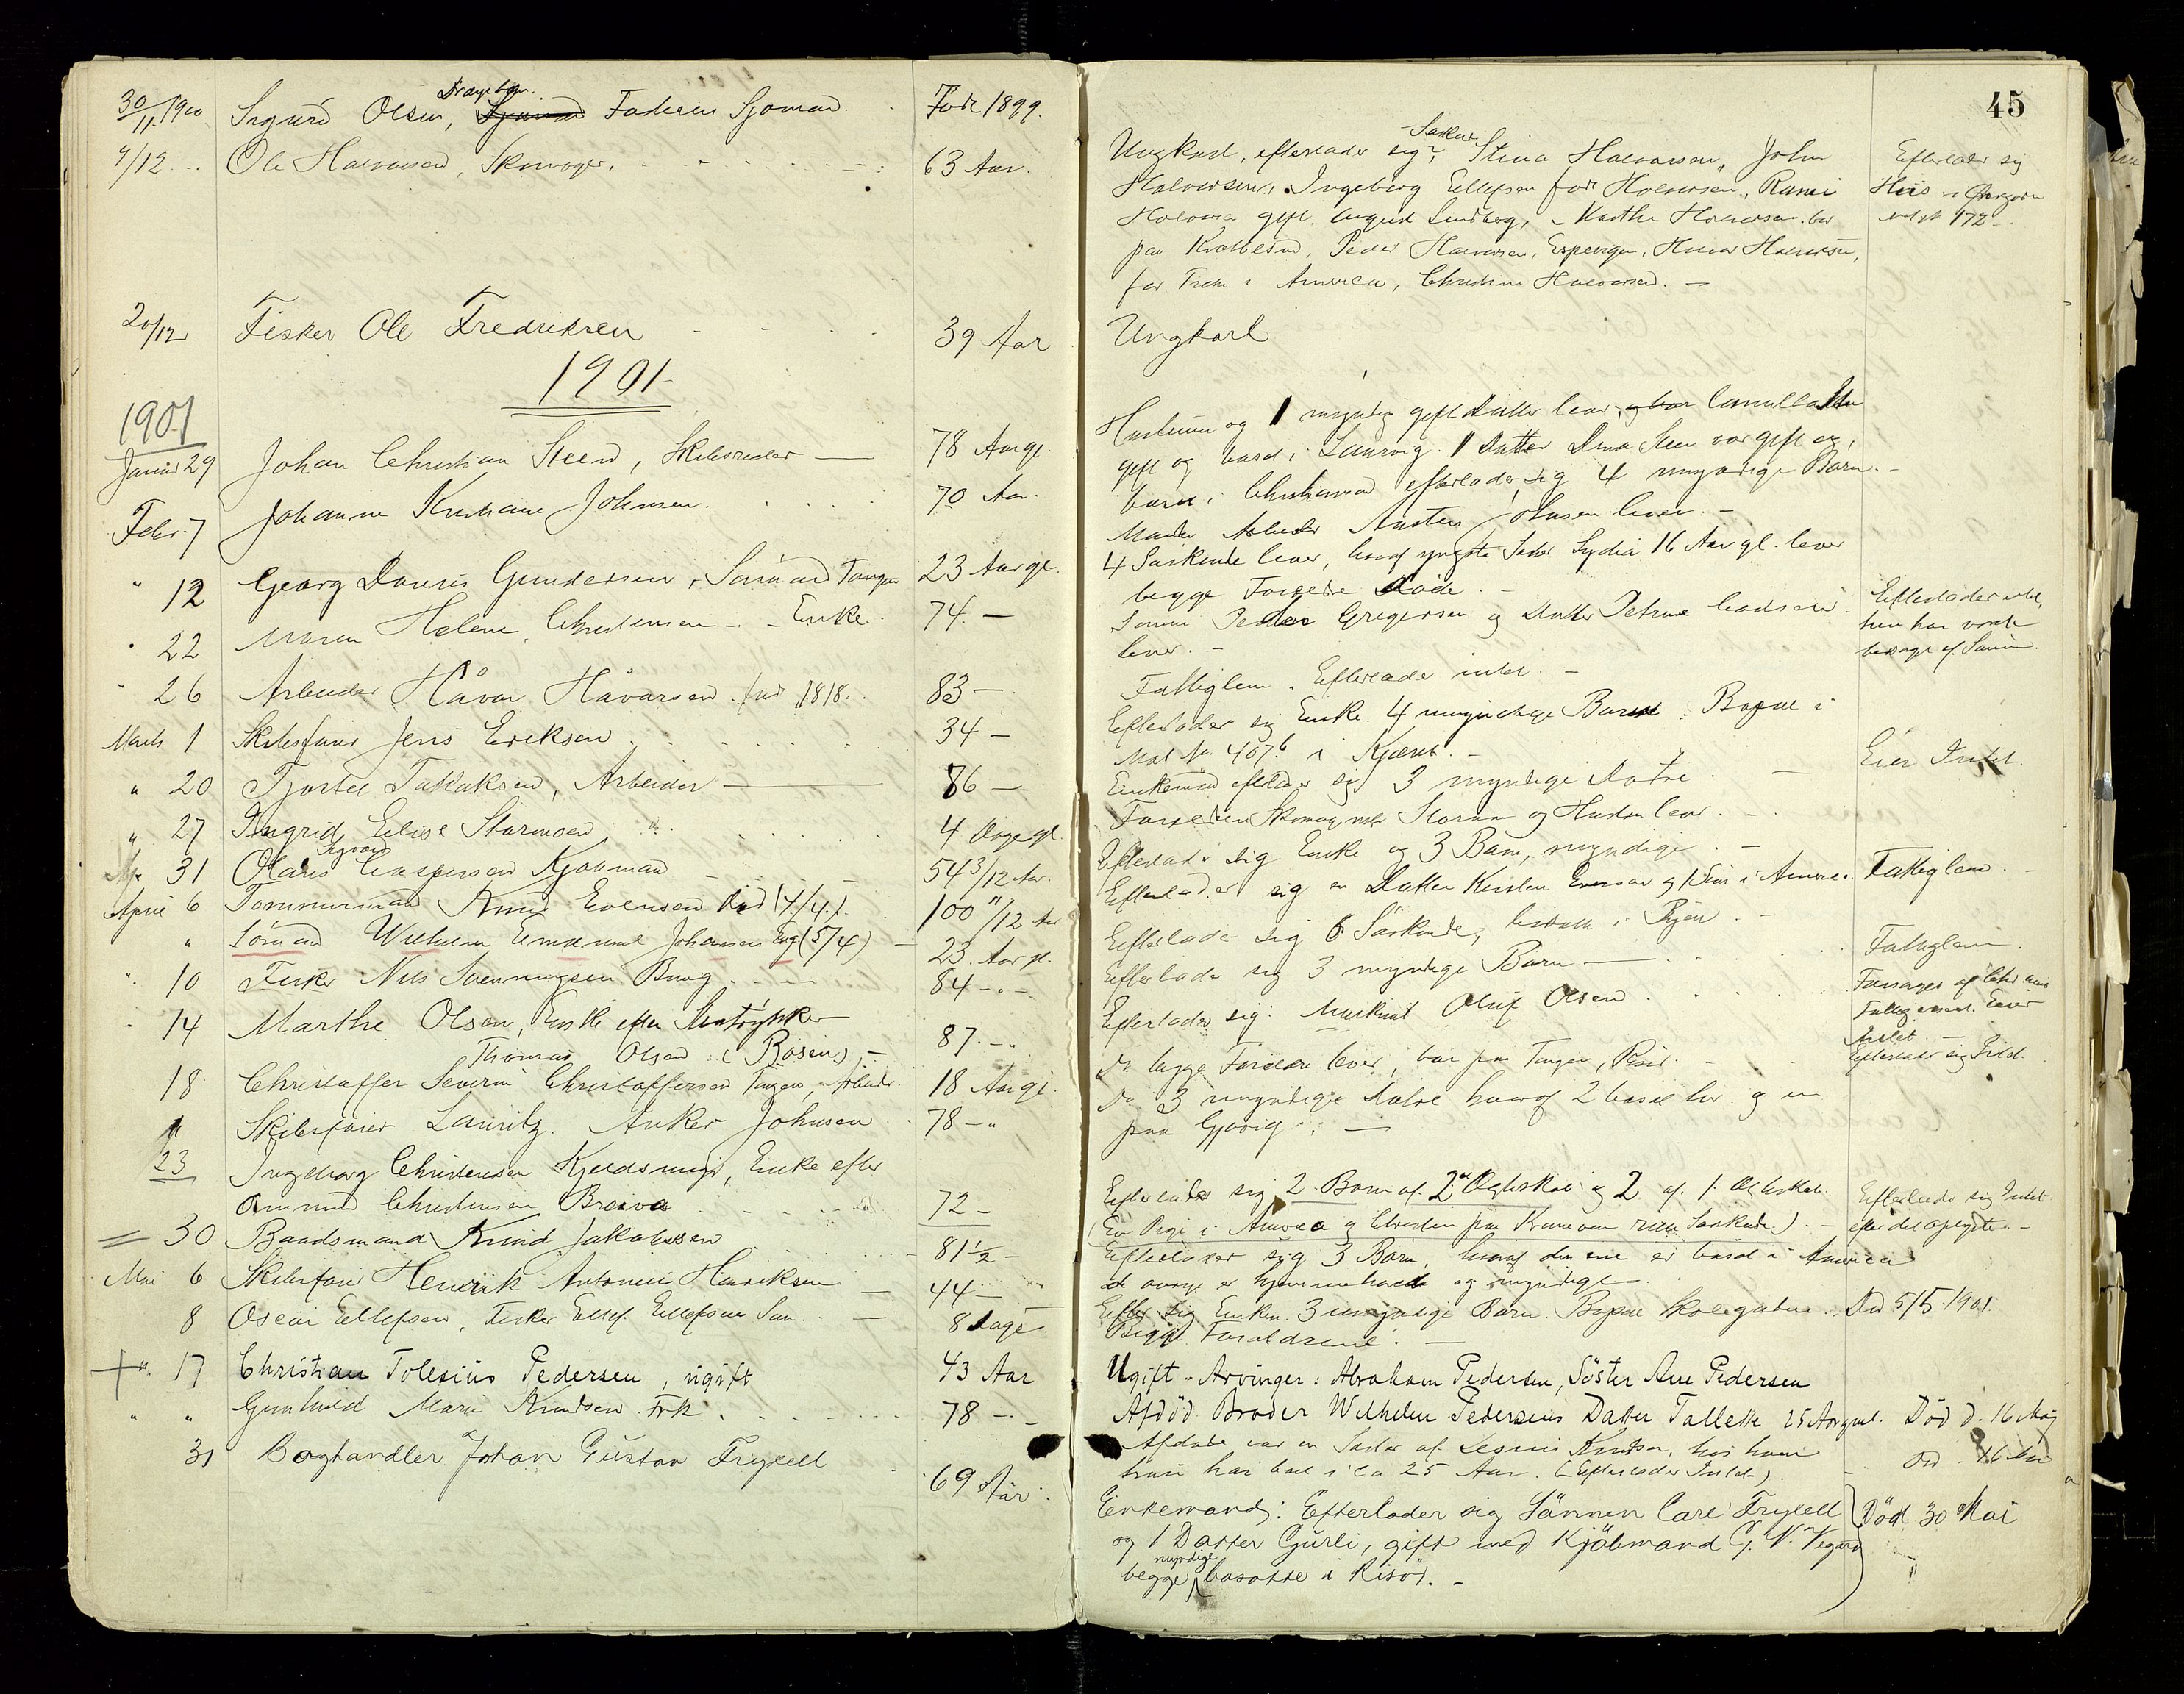 30/11 1900 Sigurd Olsen, Drængebarn. Faderen Sjömand. Född 1899.
9/12 Ole Halvorsen, Skomager. 63 Aar.
20/12 Fisker Ole Fredriksen 39 Aar
1901
1901
Januar 29 Johan Christian Steen, Skibsreder 78 Aar gl.
Febr. 7 Johanne Kristiane Johnsen. 70 Aar.
" 12 Georg Daniis Gundersen, Sömand Tangen 23 Aar gl.
" 22 Maren Helene Christensen - Enke. 74 -
" 26 Arbeider Håvor Håvorsen. född 1818. 83 -
Marts 1 Skibsfører Jens Eriksen. 34 -
" 20 Tjostel Tallaksen, Arbeider 86 -
" 27 Ingrid Elise Stormoen 4 Dage gl.
31 Olaus Sigvard Caspersen Kjöbmand 54 3/12 Aar.
April 6 Tömmermand Knud Evensen Död (4/4.) 100 11/12 Aar
" Sömand Wilhelm Emanuel Johansen Eng (5/4) 23 Aar gl.
" 10 Fisker Nils Svenningsen Bang. 84 - -
" 14 Marthe Olsen, Enke efter
Thomas Olsen (Rosein) - 87. - "
18 Christoffer Severin Christoffersen Tangen, Arbeider 18 Aar gl.
" Skibsfører Lauritz Anker Johnsen 78 - "
23 Ingeborg Christensen Kjeldsmyr, Enke efter
Ommund Christensen Breiva 72 -
30 Baadsmand Knud Jakobssen 81 1/2 -
Mai 6 Skibsfører Henrik Antonius Henriksen 44 -
8 Oscar Ellefsen, Fisker Ellef Ellefsens Sön. 8 Dage
+ " 17 Christian Tolesius Pedersen, ugift 43 Aar
" " Gunhild Marie Knudsen Frk. 78 - -
31 Boghandler Johan Gustav Fryxell 69 Aar.
45
Ungkarl, efterlader sig Söskende Stina Halvorsen, John
Halvorsen, Ingeborg Ellefsen född Halvorsen,
Halvorsen gift August Lundberg, Marthe Halvorsen bor
paa Krabbesund, Peder Halvorsen, Espevigen, Halvor Halvorsen,
for Tiden i America, Christine Halvorsen. -
Efterlader sig
Hus i Övregaden
mat № 172
Ungkarl
Hustruen og 1 myndig gift Datter lever, Camilla
gift og bosat i Laurvig. 1 Datter Dina Steen var gift og
bosat i Christiansand efterlader sig 4 umyndige Børn. -
Manden Arbeider Austen Johnsen lever. -
4 Søskende lever, hvoraf yngste Søster Lydia 16 Aar gl. lever
begge Forældre döde. -
Sönnen Peder Gregersen og Datter Petrine
lever. -
Efterlader intet,
hun har været
forsørget af Sønnen.
Fattiglem. Efterlader intet. -
Efterlader sig Enke 4 umyndige Børn. Bopæl i
Mat № 407 b i Kjærh. -
Enkemand efterlader sig 3 myndige Døtre. -
Eier Intet.
Forældrene Skomagermester Stormoen og Hustru lever.
Efterlader sig Enke og 3 Børn, myndige. -
Efterlader sig en Datter Kirsten Evensen og 1 Sön i America.
Fattiglem. -
Efterlader sig 6 Søskende, bosatte i Byen. -
Efterlader sig 3 myndige Børn -
Fattiglem.
Efterlader sig: Oluf Olsen.
Forsörges af
Fattigvæsenet. Eier
Intet. -
Do begge Forældre lever, bor paa Tangen, Risør. -
Efterlader sig Intet.
Do 3 myndige Døtre hvoraf 2 bosat her og en
paa Gjövig. -
Efterlader sig 2 Børn af 2det Ægteskab og 2 af 1. Ægteskab.
(En Pige i America og Christen paa Kranveien .) -
Efterlader sig Intet
efter det opgivne. -
Efterlader sig 3 Børn, hvoraf den ene er bosat i America
de øvrige er hjemmehørende og myndige.
Efterl. sig Enken. 3 umyndige Børn. Bopæl Skolegaden.
Död 5/5 1901.
Begge Forældrene. -
Ugift. Arvinger: Abraham Pedersen, Söster Ane Pedersen
Afdöd Broder Wilhelm Pedersens Datter Tallette 25 Aar gml.
Död d. 16 Maj
Afdøde var en Søster af Knudsen, hos ham
hun har boet i ca 25 Aar. (Efterlader Intet).
Död 16 Mai
Enkemand: Efterlader sig Sönnen Carl Fryxell
og 1 Datter Gurli, gift med Kjöbmand G. N. Vegard
begge myndige bosatte i Risör. -
Död 30 Mai